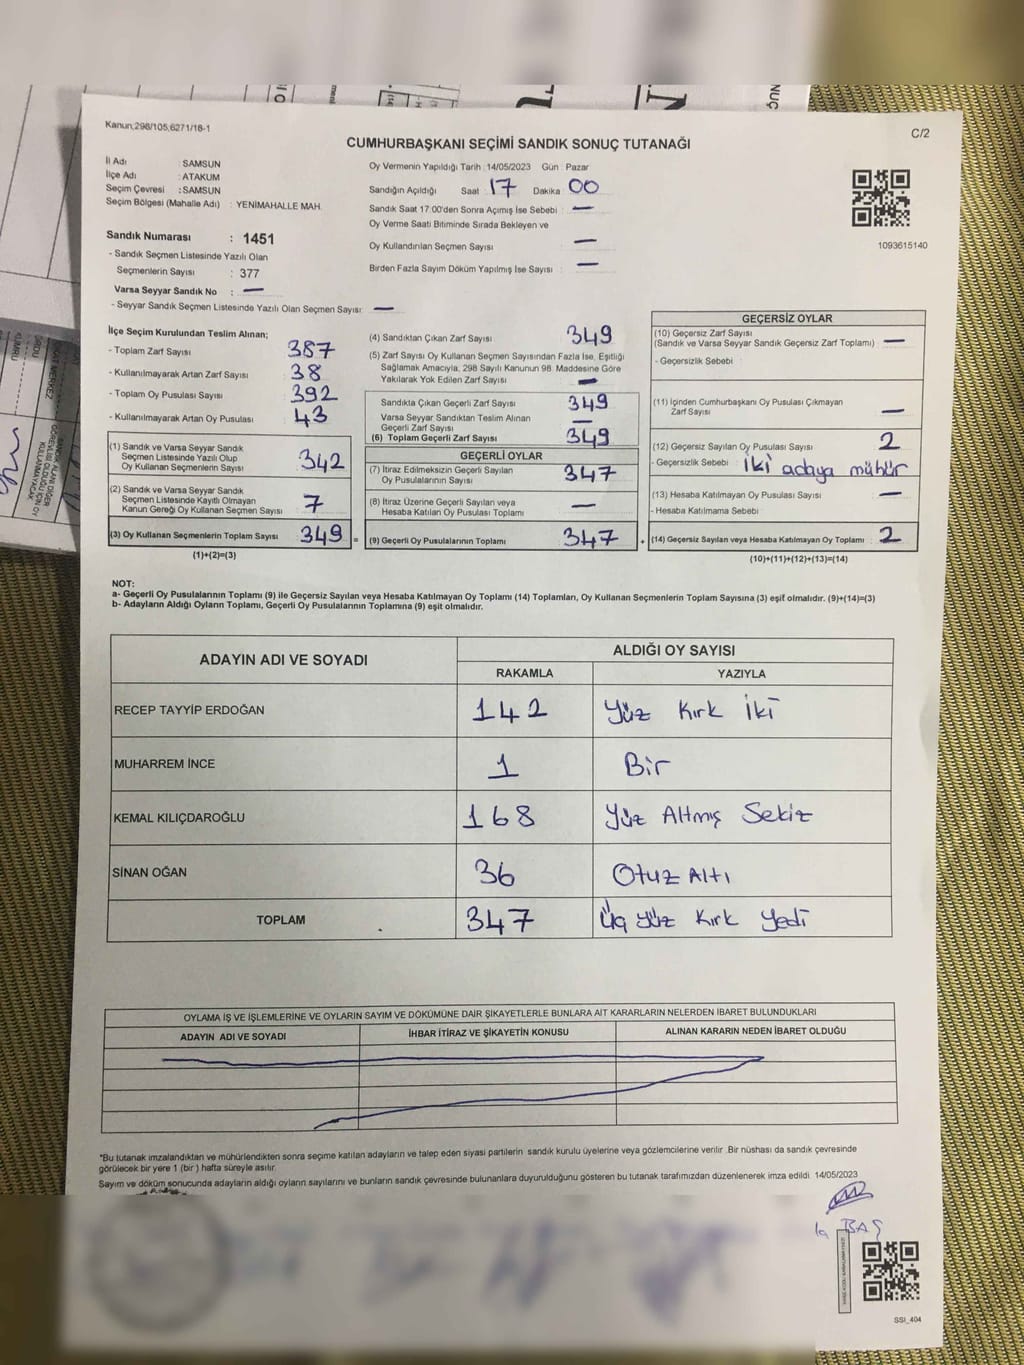 Kanun;298/105,6271/18-1
C/2
CUMHURBAŞKANI SEÇİMİ SANDIK SONUÇ TUTANAĞI
İl Adı : SAMSUN
İlçe Adı : ATAKUM
Seçim Çevresi : SAMSUN
Seçim Bölgesi (Mahalle Adı) : YENİMAHALLE MAH.
Sandık Numarası : 1451
- Sandık Seçmen Listesinde Yazılı Olan
Seçmenlerin Sayısı : 377
Varsa Seyyar Sandık No : —
- Seyyar Sandık Seçmen Listesinde Yazılı Olan Seçmen Sayısı: —
Oy Vermenin Yapıldığı Tarih : 14/05/2023 Gün : Pazar
Sandığın Açıldığı Saat 17 Dakika 00
Sandık Saat 17:00'den Sonra Açımış İse Sebebi : —
Oy Verme Saati Bitiminde Sırada Bekleyen ve
Oy Kullandırılan Seçmen Sayısı —
Birden Fazla Sayım Döküm Yapılmış İse Sayısı : —
1093615140
İlçe Seçim Kurulundan Teslim Alınan;
- Toplam Zarf Sayısı 387
- Kullanılmayarak Artan Zarf Sayısı : 38
- Toplam Oy Pusulası Sayısı : 392
- Kullanılmayarak Artan Oy Pusulası : 43
(1) Sandık ve Varsa Seyyar Sandık
Seçmen Listesinde Yazılı Olup
Oy Kullanan Seçmenlerin Sayısı : 342
(2) Sandık ve Varsa Seyyar Sandık
Seçmen Listesinde Kayıtlı Olmayan
Kanun Gereği Oy Kullanan Seçmen Sayısı : 7
(3) Oy Kullanan Seçmenlerin Toplam Sayısı : 349
(1)+(2)=(3)
(4) Sandıktan Çıkan Zarf Sayısı : 349
(5) Zarf Sayısı Oy Kullanan Seçmen Sayısından Fazla İse, Eşitliği
Sağlamak Amacıyla, 298 Sayılı Kanunun 98. Maddesine Göre
Yakılarak Yok Edilen Zarf Sayısı : —
Sandıkta Çıkan Geçerli Zarf Sayısı : 349
Varsa Seyyar Sandıktan Teslim Alınan
Geçerli Zarf Sayısı : —
(6) Toplam Geçerli Zarf Sayısı : 349
GEÇERLİ OYLAR
(7) İtiraz Edilmeksizin Geçerli Sayılan
Oy Pusulalarının Sayısı : 347
(8) İtiraz Üzerine Geçerli Sayılan veya
Hesaba Katılan Oy Pusulası Toplamı : —
= (9) Geçerli Oy Pusulalarının Toplamı : 347
GEÇERSİZ OYLAR
(10) Geçersiz Zarf Sayısı
(Sandık ve Varsa Seyyar Sandık Geçersiz Zarf Toplamı) : —
- Geçersizlik Sebebi :
(11) İçinden Cumhurbaşkanı Oy Pusulası Çıkmayan
Zarf Sayısı : —
(12) Geçersiz Sayılan Oy Pusulası Sayısı : 2
- Geçersizlik Sebebi : iki adaya mühür
(13) Hesaba Katılmayan Oy Pusulası Sayısı : —
- Hesaba Katılmama Sebebi :
+ (14) Geçersiz Sayılan veya Hesaba Katılmayan Oy Toplamı : 2
(10)+(11)+(12)+(13)=(14)
NOT:
a- Geçerli Oy Pusulalarının Toplamı (9) ile Geçersiz Sayılan veya Hesaba Katılmayan Oy Toplamı (14) Toplamları, Oy Kullanan Seçmenlerin Toplam Sayısına (3) eşit olmalıdır. (9)+(14)=(3)
b- Adayların Aldığı Oyların Toplamı, Geçerli Oy Pusulalarının Toplamına (9) eşit olmalıdır.
ADAYIN ADI VE SOYADI
ALDIĞI OY SAYISI
RAKAMLA YAZIYLA
RECEP TAYYİP ERDOĞAN 142 Yüz Kırk İki
MUHARREM İNCE 1 Bir
KEMAL KILIÇDAROĞLU 168 Yüz Altmış Sekiz
SİNAN OĞAN 36 Otuz Altı
TOPLAM 347 Üç Yüz Kırk Yedi
OYLAMA İŞ VE İŞLEMLERİNE VE OYLARIN SAYIM VE DÖKÜMÜNE DAİR ŞİKAYETLERLE BUNLARA AİT KARARLARIN NELERDEN İBARET BULUNDUKLARI
ADAYIN ADI VE SOYADI İHBAR İTİRAZ VE ŞİKAYETİN KONUSU ALINAN KARARIN NEDEN İBARET OLDUĞU
*Bu tutanak imzalandıktan ve mühürlendikten sonra seçime katılan adayların ve talep eden siyasi partilerin sandık kurulu üyelerine veya gözlemcilerine verilir. Bir nüshası da sandık çevresinde
görülecek bir yere 1 (bir ) hafta süreyle asılır.
Sayım ve döküm sonucunda adayların aldığı oyların sayılarını ve bunların sandık çevresinde bulunanlara duyurulduğunu gösteren bu tutanak tarafımızdan düzenlenerek imza edildi. 14/05/2023
BAŞ
SSI_404